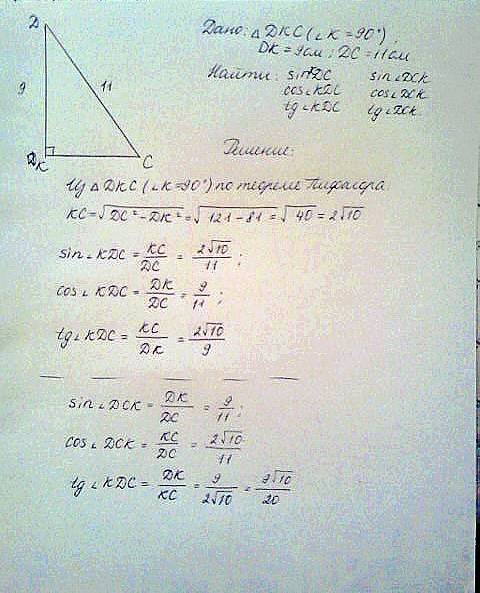 Д
9
11
К
С
Дано: △ DKC (∠K = 90°),
DK = 9 см; DC = 11 см
Найти: sin∠KDC sin∠DCK
cos∠KDC cos∠DCK
tg∠KDC tg∠DCK
Решение:
Из △ DKC (∠K = 90°) по теореме Пифагора
KC = √DC² - DK² = √121 - 81 = √40 = 2√10
sin∠KDC = KC/DC = 2√10/11;
cos∠KDC = DK/DC = 9/11;
tg∠KDC = KC/DK = 2√10/9
sin∠DCK = DK/DC = 9/11;
cos∠DCK = KC/DC = 2√10/11
tg∠KDC = DK/KC = 9/2√10 = 9√10/20